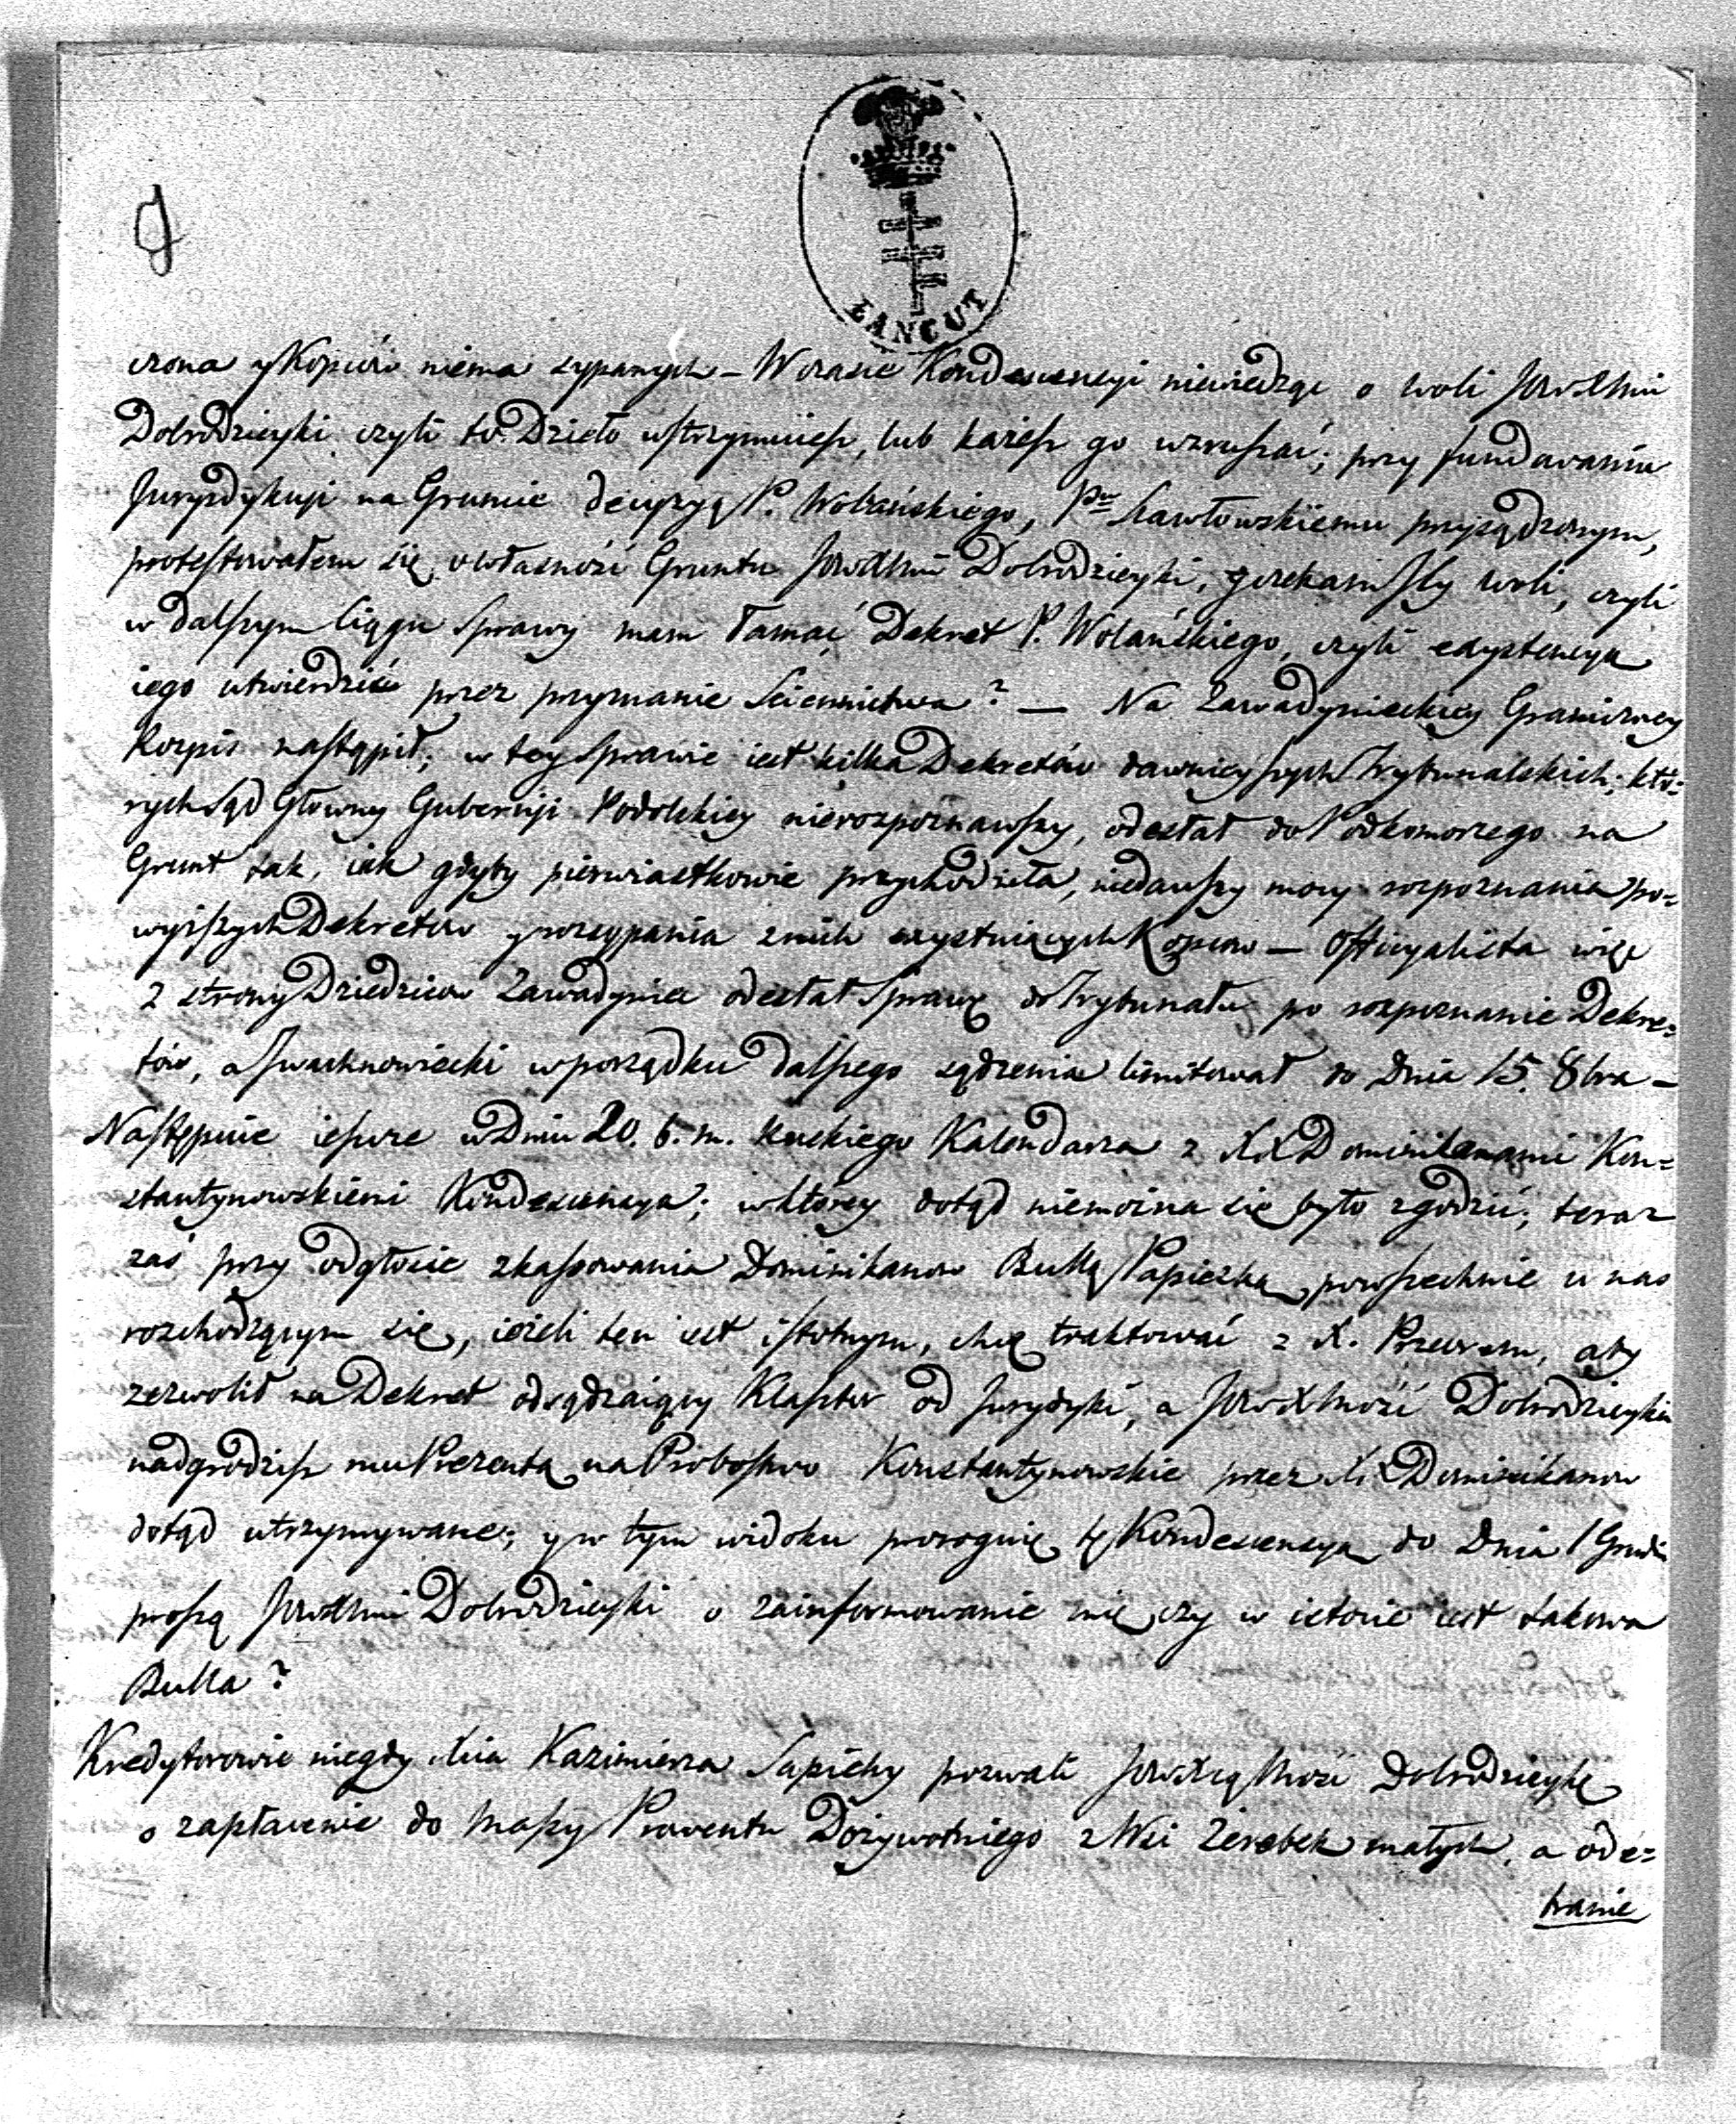 ŁAŃCUT
czona y Kopców niema sypanych – W czasie Kondescensyi niewiedząc o woli JWXMci
Dobrodzieyki czyli to Dzieło utrzymuiesz, lub każesz go wzruszać; przy fundowaniu
Jurysdykcyi na Gruncie decyzyą P. Wolańskiego, P. przysądzonym,
protestowałem się o własność Gruntu JWXMci Dobrodzieyki, y czekam Jey woli, czyli
w dalszym Ciągu Sprawy mam łamać Dekret P. Wolańskiego, czyli exystencyą
iego utwierdzić przez przyznanie ? — Na Zawadynieckiey Graniczney
Kopis nastąpił; w tey Sprawie iest kilka Dekretów dawnieyszych Trybunalskich; któ=
rych Sąd Głowny Gubernji Podolskiey nierozpoznawszy, odesłał do Podkomorzego na
Grunt tak, iak gdyby pierwiastkowie przychodziła, niedawszy mocy rozpoznania po=
wyższych Dekretów y rozsypania z nich exystuiących Kopcow – Officyalista więc
z strony Dziedzicow Zawadyniec odesłał Sprawę do Trybunału po rozpoznanie Dekre=
tów, a w porządku dalszego sądzenia limitował do Dnia 15. 8bra –
Następuie ieszcze w Dniu 20. b. m. Ruskiego Kalendarza z XX Dominikanami Kon=
stantynowskiemi Kondescensya; w ktorey dotąd niemożna się było zgodzić; teraz
zaś przy odgłosie zkassowania Dominikanow Bullą Papiezką powszechnie u nas
rozchodzącym się, ieżeli ten iest istotnym, chcę traktować z X. Przeorem, aby
zezwolił na Dekret odsądzaiący Klasztor od Jurydyki, a JWXMość Dobrodzieyka
nadgrodzisz mu Prezentą na Probostwo Konstantynowskie przez XX Dominikanow
dotąd utrzymywane; y w tym widoku proroguię tę Kondescensyą do Dnia 1 Grudnia
proszę JWXMci Dobrodzieyki o zainformowanie mię czy w istocie iest takowa
Bulla?
Kredytorowie niegdy Xcia Kazimierza Sapiehy pozwali JWXiąMość Dobrodzieykę
o zapłacenie do Massy Prowentu Dożywotniego z Wsi Zerebek małych, a ode=
branie